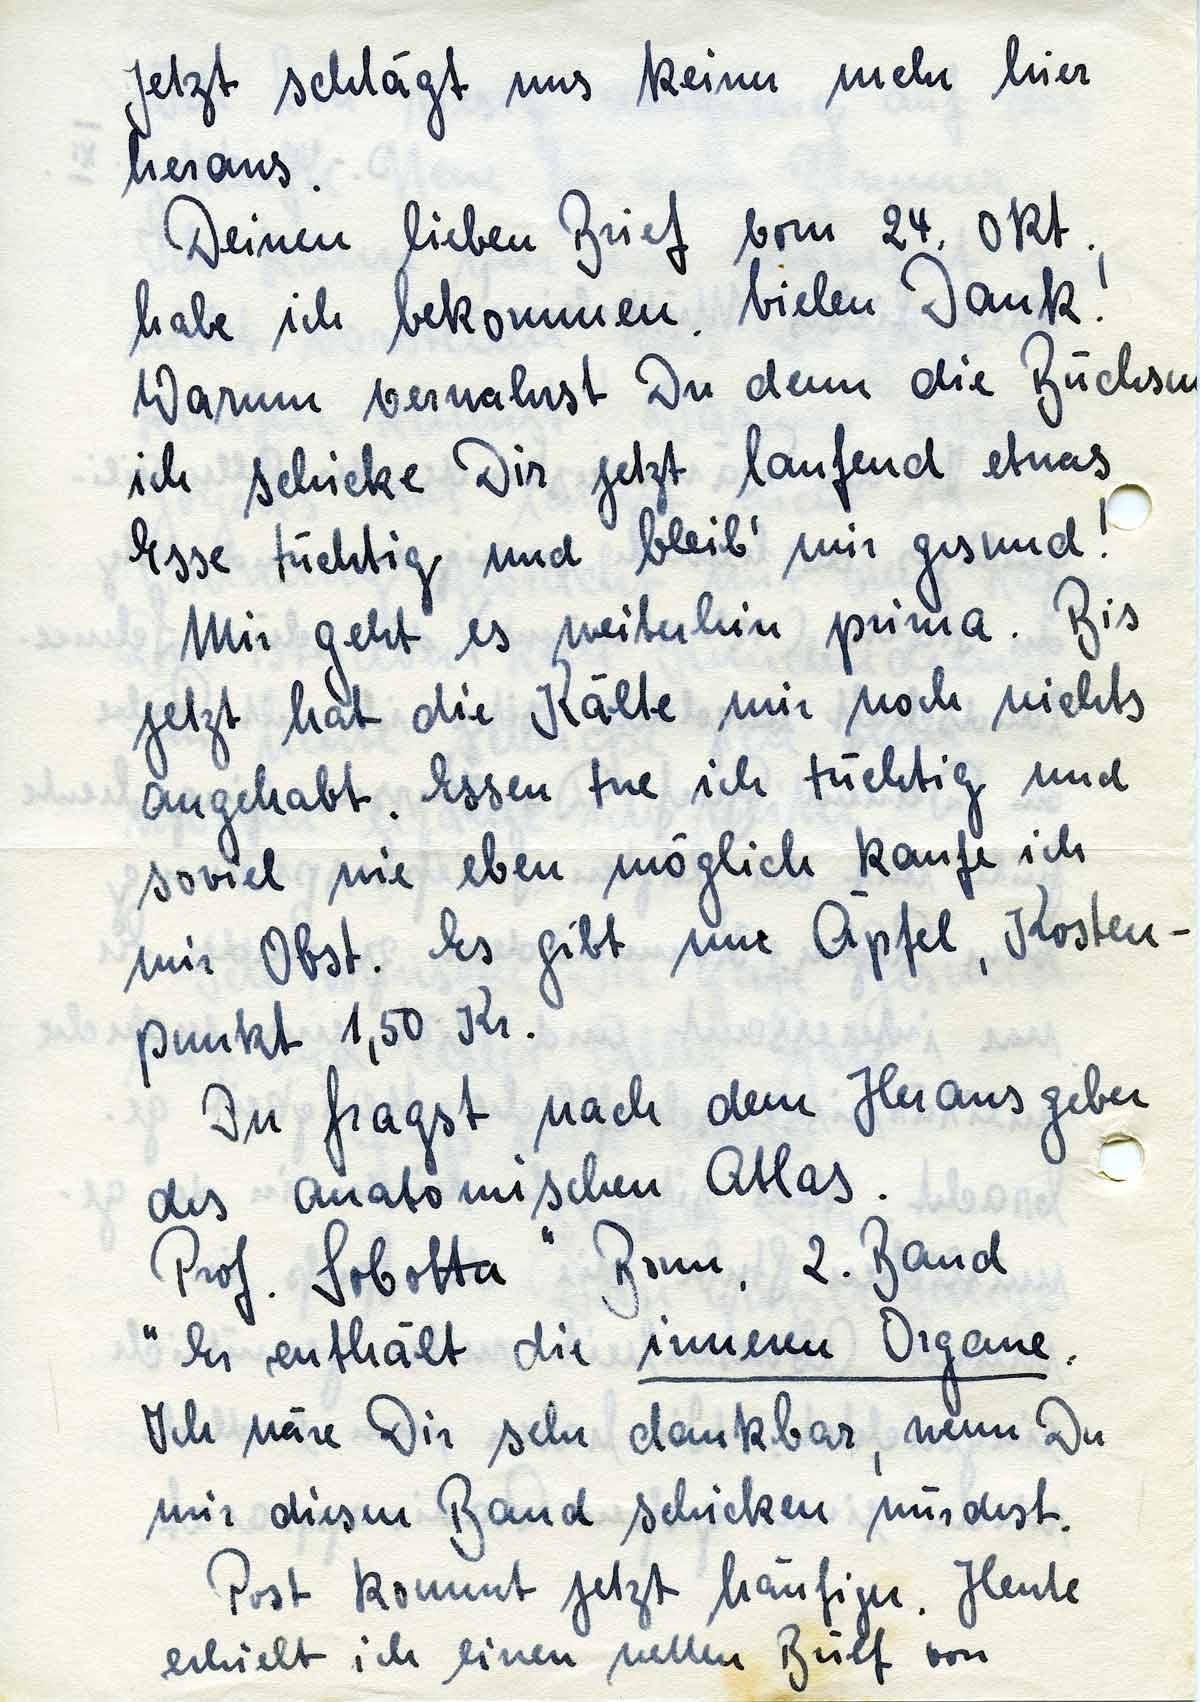 Jetzt schlägt uns keiner mehr hier
heraus.
Deinen lieben Brief vom 24. Okt.,
habe ich bekommen. Vielen Dank!
Warum verwahrst Du denn die Büchsen
ich schicke Dir jetzt laufend etwas
Esse tüchtig und bleib' mir gesund!
Mir geht es weiterhin prima. Bis
jetzt hat die Kälte mir noch nichts
angehabt. Essen tue ich tüchtig und
soviel wie eben möglich kaufe ich
mir Obst. Es gibt nur Äpfel, Kosten-
punkt 1,50 Kr.
Du fragst nach dem Herausgeber
des anatomischen Atlas.
Prof. Sobotta " Bonn, 2. Band
" Er enthält die inneren Organe.
Ich wäre Dir sehr dankbar, wenn Du
mir diesen Band schicken würdest.
Post kommt jetzt häufiger. Heute
erhielt ich einen netten Brief von